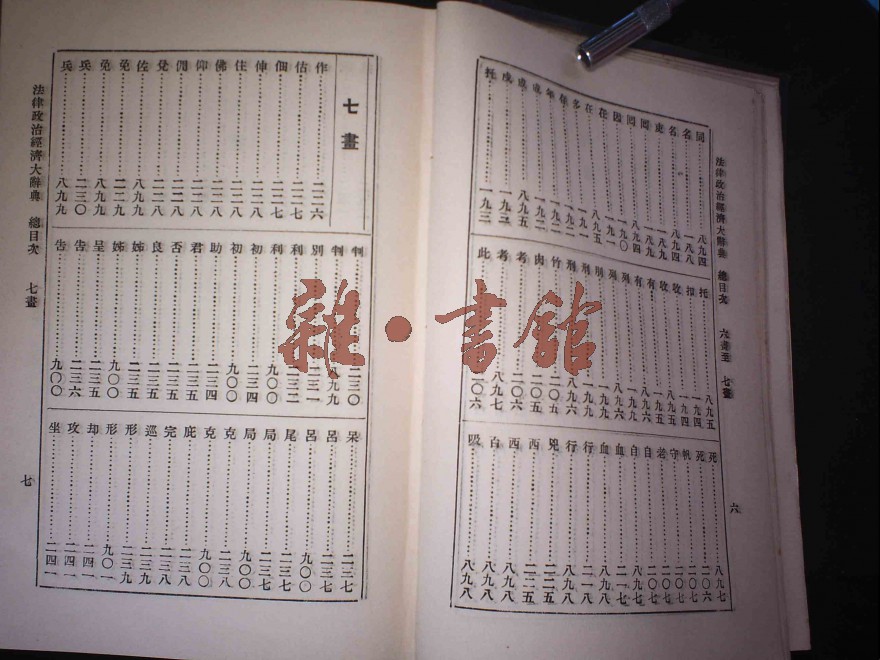 法律政治經濟大辭典 總目次 六畫至七畫
同 八九四
名 一八八
名 八九四
吏 一八九
因 八九四
在 一九一
多 一九一
年 一九二
成 八九五
成 一九三
托 一九三
托 八九五
扣 一九四
收 一九四
收 一九五
有 一九五
有 八九六
列 一九九
刑 一九九
刑 八九六
竹 二〇五
肉 二〇五
考 二〇六
考 八九七
此 二〇六
死 八九七
死 二〇六
帆 二〇七
守 二〇七
老 二〇七
自 二〇七
自 八九七
血 二一七
血 八九八
行 二一八
行 八九八
兇 二二五
西 二二五
西 八九八
百 八九八
吸 八九八
六
法律政治經濟大辭典 總目次 七畫
七畫
作 二二六
估 二二七
佃 二二七
伸 二二八
住 二二八
佛 二二八
仰 二二八
佐 八九九
免 二二九
免 八九九
兵 二三〇
兵 八九九
判 二三〇
判 八九九
別 二三一
利 二三二
利 九〇〇
初 二三四
初 九〇〇
助 二三四
君 二三五
否 二三五
良 二三五
姊 二三五
姊 九〇〇
呈 二三五
告 二三六
告 九〇〇
呆 二三七
呂 二三七
呂 九〇〇
尾 二三七
局 二三七
局 九〇〇
克 二三八
克 九〇〇
庇 二三八
完 二三九
巡 二三九
形 二三九
形 九〇一
却 二四一
攻 二四一
坐 二四一
七
雜·書館